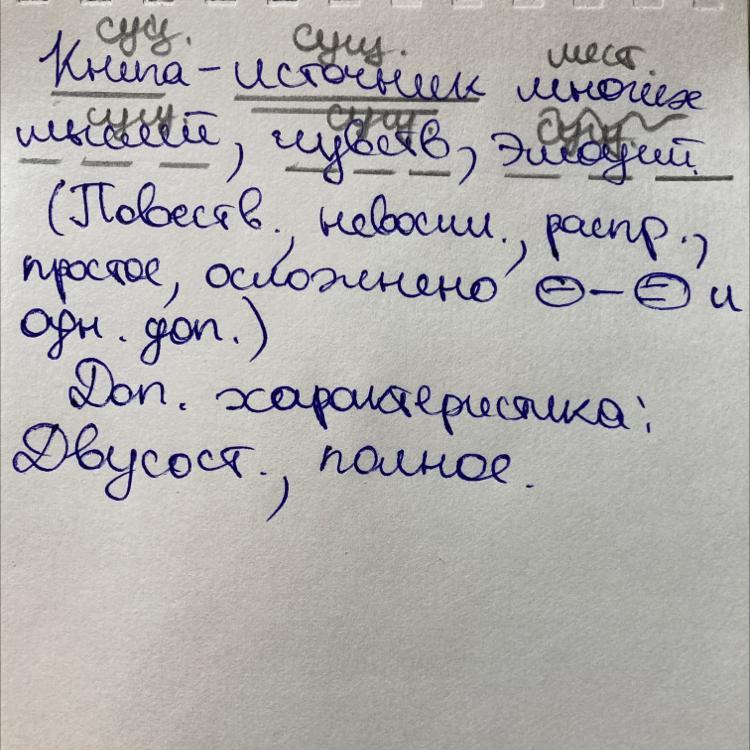 сущ. сущ. мест.
Книга – источник многих
сущ. сущ. сущ.
мыслей, чувств, эмоций.
(Повеств., невоскл., распр.,
простое, осложнено ⊖ – ⊜ и
одн. доп.)
Доп. характеристика:
Двусост., полное.